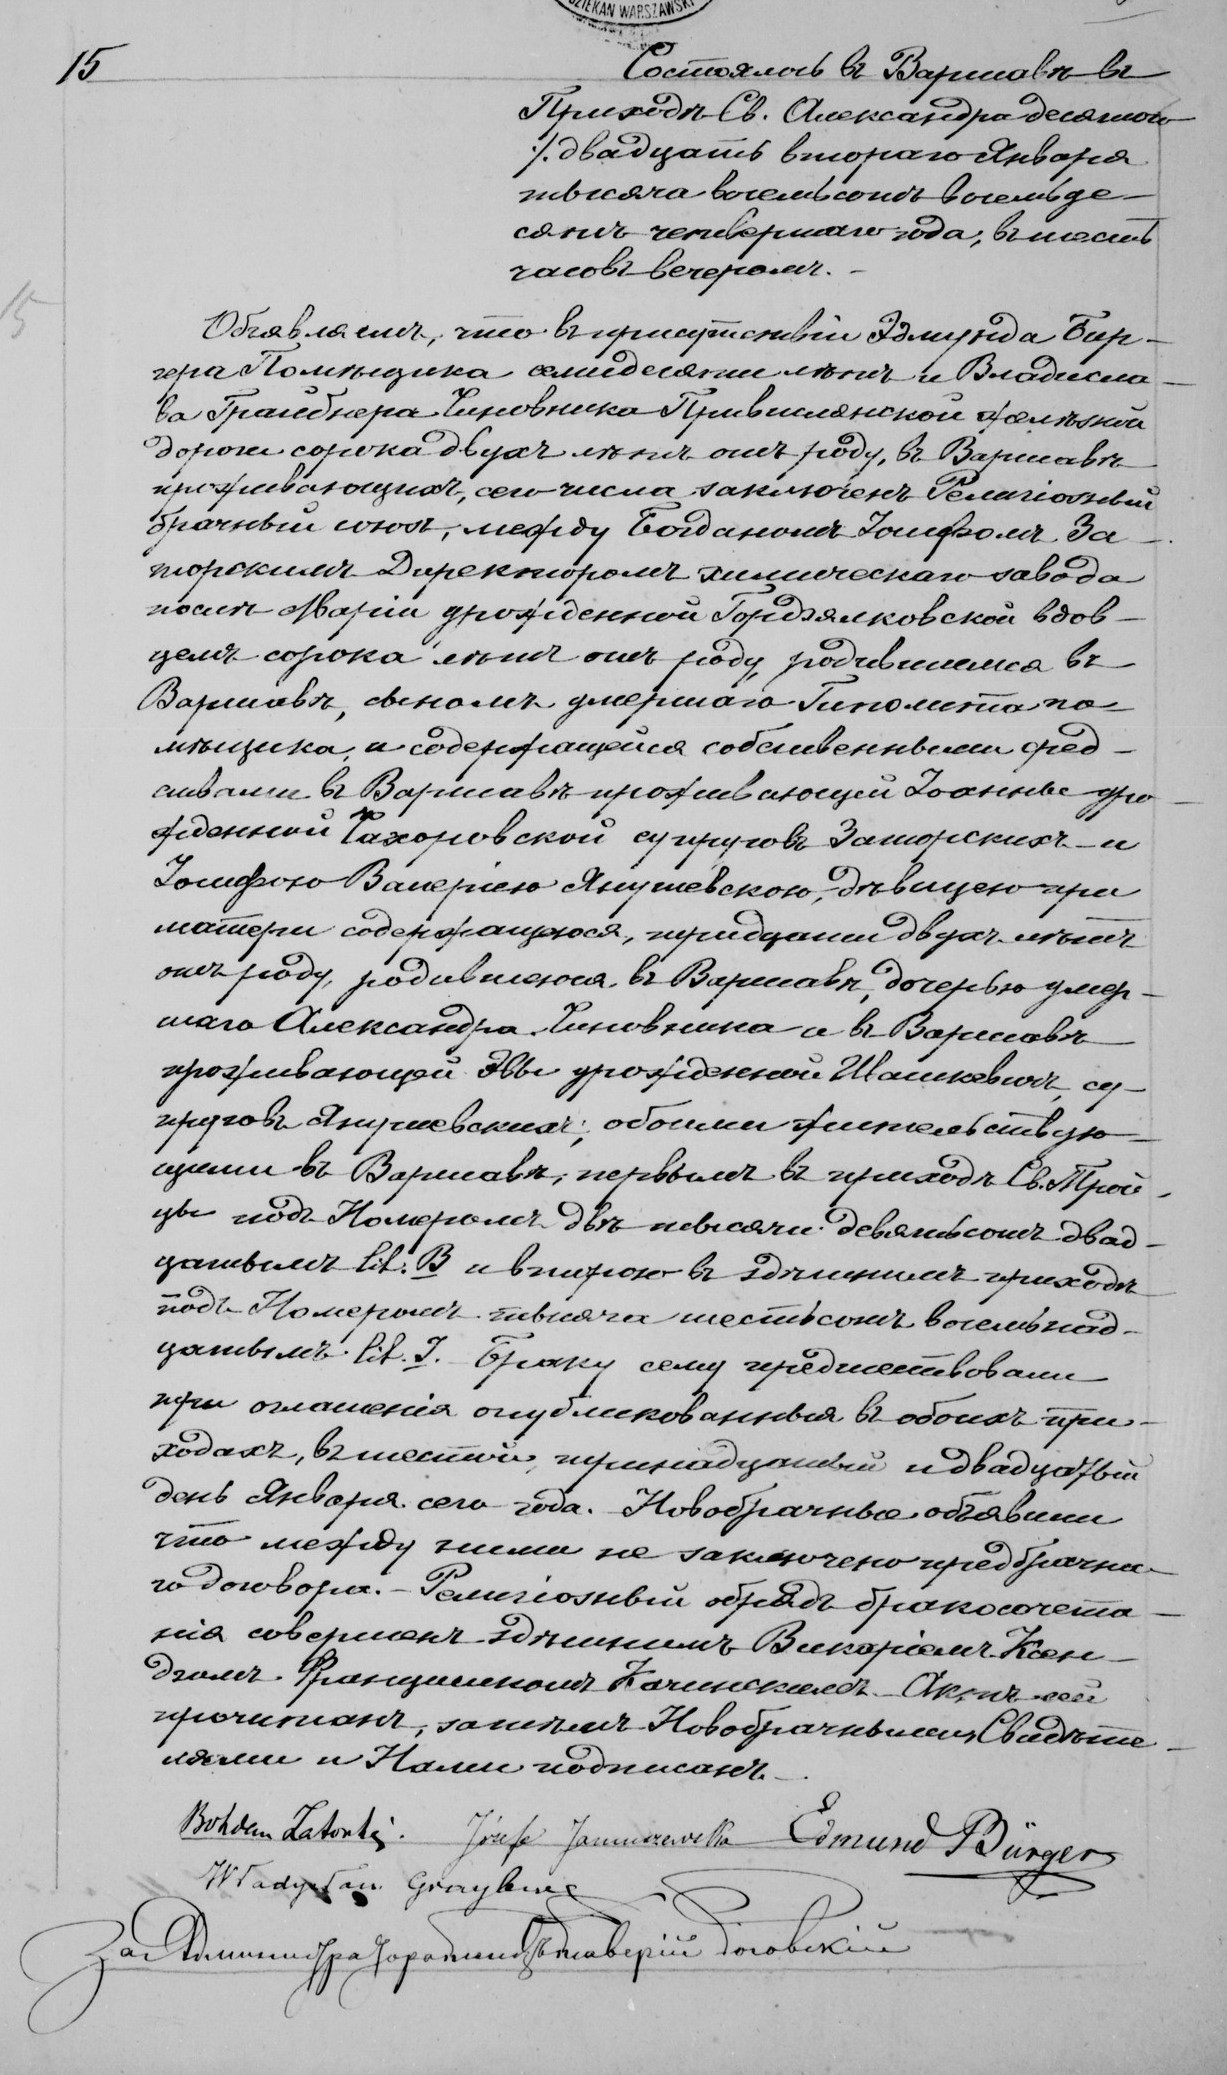 DZIEKAN WARSZAWSKI
15
Состоялось въ Варшавѣ въ
Приходѣ Св. Александра десятого
/. двадцать втораго Января
тысяча восемьсотъ восемьде-
сятъ четвертаго года, въ шесть
часовъ вечеромъ. -
15
Объявляемъ, что въ присутствіи Эдмунда Бир-
гера Помѣщика семидесяти лѣтъ и Владисла-
ва Грайбнера Чиновника Привислянской желѣзной
дороги сорока двухъ лѣтъ отъ роду, въ Варшавѣ
проживающихъ, сего числа заключенъ Религіозный
брачный союзъ, между Богданомъ Іосифомъ За-
торскимъ Директоромъ химическаго завода
послѣ Маріи урожденной Гордзялковской вдов-
цемъ сорока лѣтъ отъ роду, родившимся въ
Варшавѣ, сыномъ умершаго Гиполита по-
мѣщика, и содержащейся собственными сред-
ствами въ Варшавѣ проживающей Іоанны уро-
жденной Чахоровской супруговъ Заторскихъ - и
Іосифою Валеріею Янушевскою, дѣвицею при
матери содержащеюся, тридцати двухъ лѣтъ
отъ роду, родившеюся въ Варшавѣ, дочерью умер-
шаго Александра Чиновника и въ Варшавѣ
проживающей Эвы урожденной Шашкевичъ, су-
пруговъ Янушевскихъ; обоими жительствую-
щими въ Варшавѣ, первымъ въ приходѣ Св. Трои-
цы подъ Номеромъ двѣ тысячи девятьсотъ двад-
цатымъ lit. B и второю въ здѣшнимъ приходѣ
подъ Номеромъ тысяча шестьсотъ восемьнад-
цатымъ lit. J. - Браку сему предшествовали
три оглашенія опубликованныя въ обоихъ при-
ходахъ, въ шестой, тринадцатый и двадцатый
день Января сего года. Новобрачные объявили
что между ними не заключено предбрачна-
го договора. - Религіозный обрядъ бракосочета-
нія совершенъ здѣшнимъ Викаріемъ Ксен-
дзомъ Францишкомъ Качинскимъ. Актъ сей
прочитанъ, затѣмъ Новобрачными, Свидѣте-
лями и Нами подписанъ. -
Bohdan Zatorski. Józefa Januszewska Edmund Bürger
Władysław Graybner
За Администратора